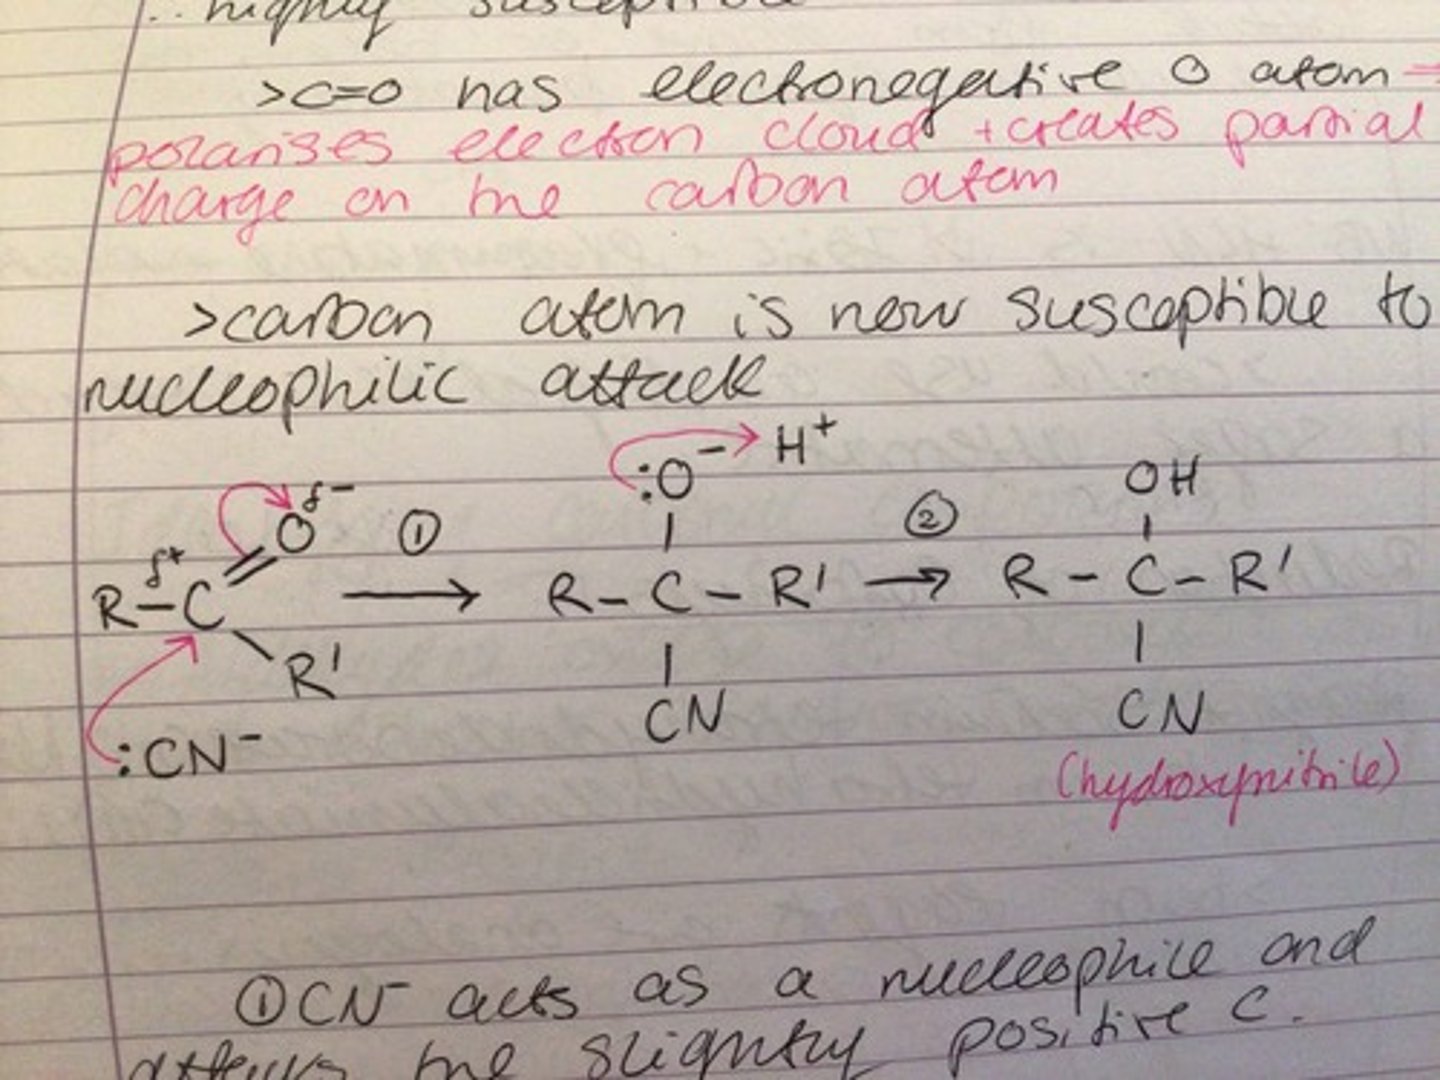 ∴ highly susceptible
>C=O has electronegative O atom →
polarises electron cloud + creates partial
charge on the carbon atom
>carbon atom is now susceptible to
nucleophilic attack
:O⁻ H⁺
OH
δ⁺ O δ⁻ ① ②
R–C → R–C–R' → R–C–R'
R'
CN CN
:CN⁻
(hydroxynitrile)
① CN⁻ acts as a nucleophile and
attacks the slightly positive C.